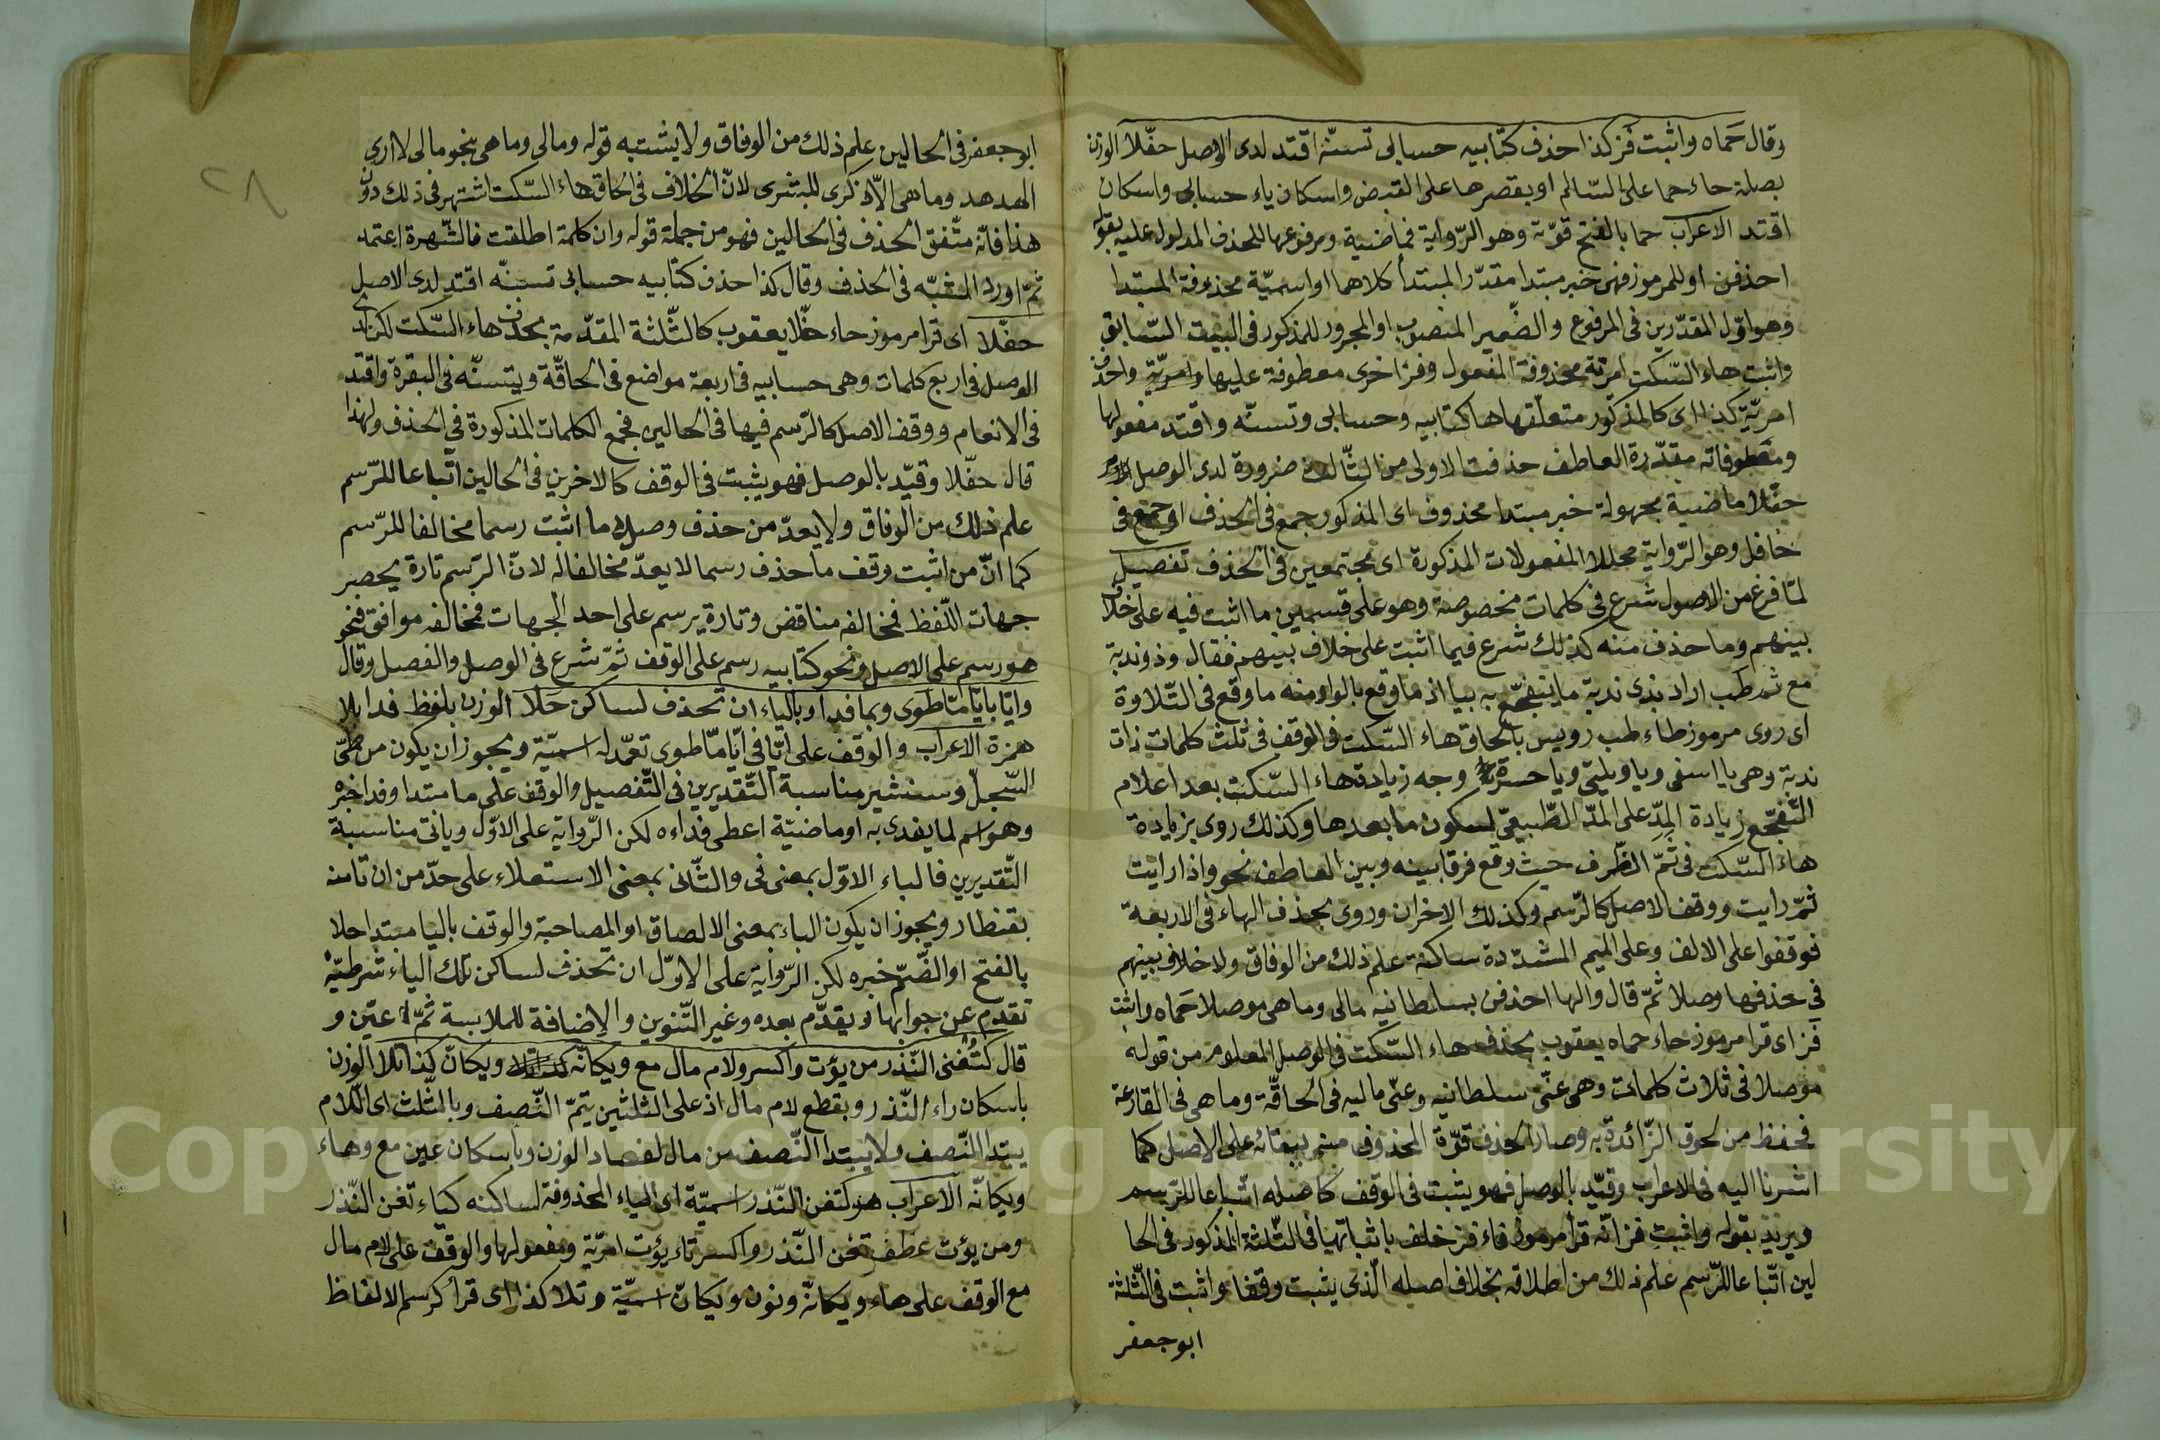 وقال حماه واثبت فز كذا احذف كتابيه حسابي تسنه اقتد لدى الوصل حفلا الوزن
بصلة حاء حما على السالم او بقصرها على القبض واسكان ياء حسابي واسكان
اقتد الاعراب حما بالفتح قوته وهو الرواية فماضية ومرفوعها للحذف المدلول عليه بقوله
احذفن او للمرموز فهى خبر مبتدا مقدر المبتدأ كلاهما او اسمية محذوفة المبتدا
وهو اول المقدرين في المرفوع والضمير المنصوب او المجرور للمذكور في البيت السابق
واثبت هاء السكت امرية محذوفة المفعول وفز اخرى معطوفة عليها واحذف
امرية كذا اى كالمذكور متعلقها ها كتابيه وحسابي وتسنه واقتد مفعولها
ومعطوفاته مقدرة العاطف حذفت الاولى من الثالث ضرورة لدى الوصل
حفلا ماضية مجهولة خبر مبتدا محذوف اى المذكور جمع في الحذف او جمع في
حافل وهو الرواية محللا المفعولات المذكورة اى مجتمعين في الحذف تفصيل
لما فرغ من الاصول شرع في كلمات مخصوصة وهو على قسمين ما اثبت فيه على خلاف
بينهم وما حذف منه كذلك شرع فيما اثبت على خلاف بينهم فقال وذو ندبة
مع ثم طب اراد بذى ندبة ما يتفجع به بيا اذ ما وقع بالواو منه ما وقع في التلاوة
اى روى مرموز طاء طب رويس بالحاق هاء السكت في الوقف في ثلث كلمات ذات
ندبة وهى يا اسفى ويا ويلتى ويا حسرتى وجه زيادة هاء السكت بعد اعلام
التفجع زيادة المد على المد الطبيعى لسكون ما بعدها وكذلك روى بزيادة
هاء السكت في ثم الظرف حيث وقع فرقا بينه وبين العاطف نحو واذا رايت
ثم رايت ووقف الاصل كالرسم وكذلك الاخران وروى بحذف الهاء في الاربعة
فوقفوا على الالف وعلى الميم المشددة ساكنة علم ذلك من الوفاق ولا خلاف بينهم
في حذفها وصلا ثم قال والها احذفن بسلطانيه مالى وما هى موصلا حماه واثبت
فز اى قرا مرموز حاء حماه يعقوب بحذف هاء السكت في الوصل المعلوم من قوله
موصلا في ثلاث كلمات وهى عنى سلطانيه وعنى ماليه في الحاقة وما هى في القارعة
فحفظ من لحوق الزائدة به وصار الحذف قوة المحذوف منه ببقائه على الاصل كما
اشرنا اليه في الاعراب وقيد بالوصل فهو يثبت في الوقف كاصله اتباعا للرسم
ويريد بقوله واثبت فز انه قرا مرموز فاء فز خلف باثباتها في الثلثة المذكور في الحا
لين اتباعا للرسم علم ذلك من اطلاقه بخلاف اصله الذى يثبت وقفا واثبت في الثلثة
ابو جعفر
ابو جعفر في الحالين علم ذلك من الوفاق ولا يشتبه قوله ومالى وما هى بنحو مالى لا ارى
الهدهد وما هى الا ذكرى للبشرى لان الخلاف في الحاق هاء السكت اشتهر في ذلك دون
هذا فانه متفق الحذف في الحالين فهو من جملة قوله وان كلمة اطلقت فالشهرة اعتمد
ثم اورد المشبه في الحذف وقال كذا احذف كتابيه حسابي تسنه اقتد لدى الاصل
حفلا اى قرا مرموز حاء حفلا يعقوب كالثلثة المقدمة بحذف هاء السكت لكن لدى
الوصل في اربع كلمات وهى حسابيه في اربعة مواضع في الحاقة ويتسنه في البقرة واقتد
في الانعام ووقف الاصل كالرسم فيها في الحالين فجمع الكلمات المذكورة في الحذف ولهذا
قال حفلا وقيد بالوصل فهو يثبت في الوقف كالاخرين في الحالين اتباعا للرسم
علم ذلك من الوفاق ولا يعد من حذف وصلا ما اثبت رسما مخالفا للرسم
كما ان من اثبت وقف ما حذف رسما لا يعد مخالفا له لان الرسم تارة يحصر
جهات اللفظ فمخالفه مناقض وتارة يرسم على احد الجهات فمخالفه موافق فنحو
هو رسم على الاصل ونحو كتابيه رسم على الوقف ثم شرع في الوصل والفصل وقال
وايا بايا ما طوى وبما فدا وبالياء ان تحذف لساكن حلا الوزن بلفظ فدا بلا
همزة الاعراب والوقف على ايا في ايا ما طوى تعمد له اسمية ويجوز ان يكون من طى
السجل وسنشير مناسبة التقديرين في التفصيل والوقف على ما مبتدا وفدا خبره
وهو اسم لما يفدى به او ماضية اعطى فداءه لكن الرواية على الاول وياتى مناسبة
التقديرين فالباء الاول بمعنى في والثانى بمعنى الاستعلاء على حد من ان تامنه
بقنطار ويجوز ان يكون الباء بمعنى الالصاق او المصاحبة والوقف باليا مبتدا حلا
بالفتح او الضم خبره لكن الرواية على الاول ان تحذف لساكن تلك الياء شرطية
تقدم عن جوابها او يقدم بعده وغير التنوين والاضافة للملابسة ثم عين و
قال كتغنى النذر من يؤت واكسر ولام مال مع ويكانه ويكان كذا تلا الوزن
باسكان راء النذر وبقطع لام مال اذ على الثلثين يتم النصف وبالثلث اى اللام
يبتدا النصف ولا يبتدا النصف من مال لفساد الوزن وباسكان عين مع وهاء
ويكانه الاعراب هو كتغن النذر اسمية اى الياء المحذوفة لساكنه كياء تغن النذر
ومن يؤت عطف تغن النذر واكسر تاء يؤت امرية ومفعولها والوقف على لام مال
مع الوقف على هاء ويكانه ونون ويكان اسمية وتلا كذا اى قرا كرسم الالفاظ
٢٨
Copyright © King Saud University